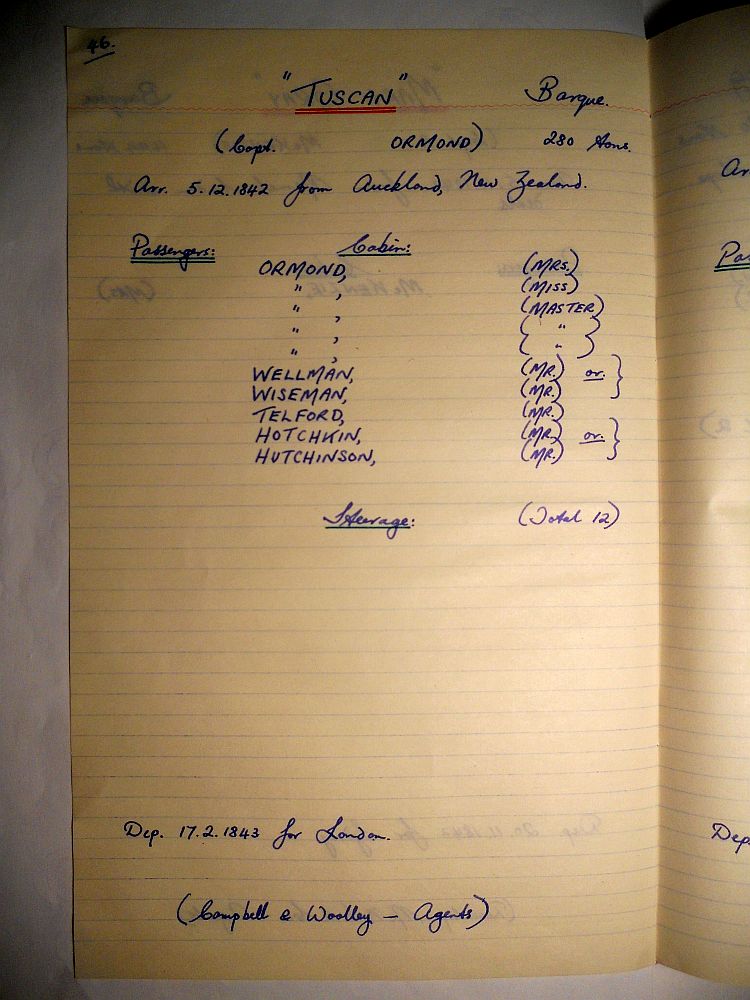 46.
"TUSCAN" Barque.
(Capt. ORMOND) 280 tons.
Arr. 5.12.1842 from Auckland, New Zealand.
Passengers: Cabin:
ORMOND, (MRS.)
" , (MISS)
" , (MASTER)
" , ( " )
" , ( " )
WELLMAN, (MR.) or. }
WISEMAN, (MR.)
TELFORD, (MR.)
HOTCHKIN, (MR.) or. }
HUTCHINSON, (MR.)
Steerage: (Total 12)
Dep. 17.2.1843 for London.
(Campbell & Woolley - Agents)
Ar
Pa
Dep